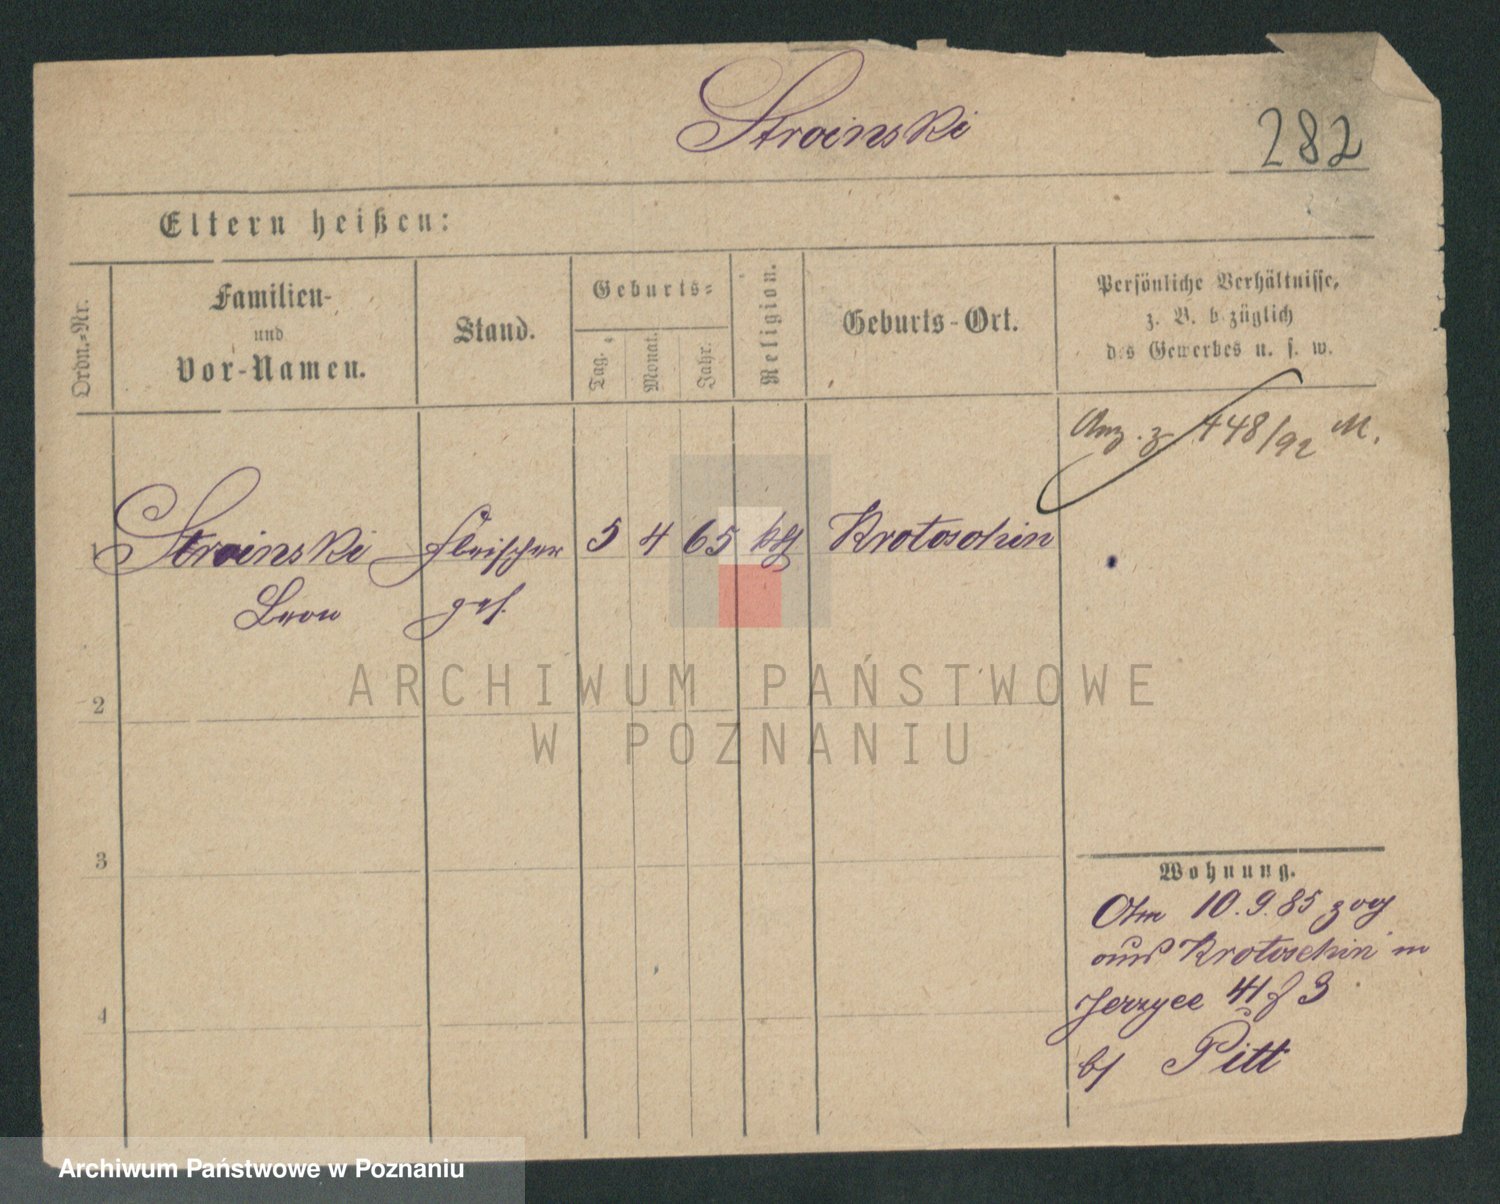 Stroinski
282
Eltern heißen:
Ordn.-Nr.
Familien-
und
Vor-Namen.
Stand.
Geburts-
Tag.
Monat.
Jahr.
Religion.
Geburts-Ort.
Persönliche Verhältnisse,
z. B. bezüglich
des Gewerbes u. s. w.
Anz. z. 448/92 M.
1 Stroinski Fleischer 5 4 65 kth Krotoschin
Leon ges.
2
3
4
Wohnung.
Am 10.9.85 zog
aus Krotoschin n
Jerzyce 41 3
bei Pitt
ARCHIWUM PAŃSTWOWE
W POZNANIU
Archiwum Państwowe w Poznaniu